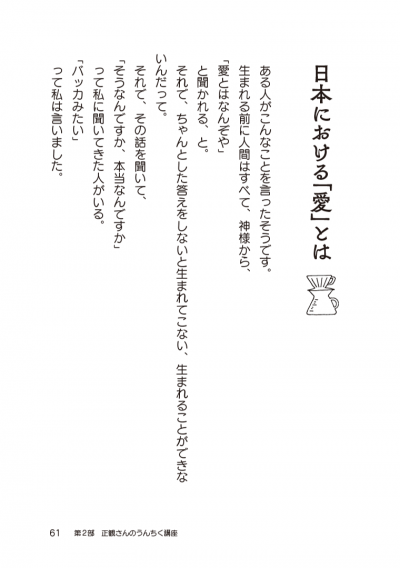 日本における「愛」とは
ある人がこんなことを言ったそうです。
生まれる前に人間はすべて、神様から、
「愛とはなんぞや」
と聞かれる、と。
それで、ちゃんとした答えをしないと生まれてこない、生まれることができな
いんだって。
それで、その話を聞いて、
「そうなんですか、本当なんですか」
って私に聞いてきた人がいる。
「バッカみたい」
って私は言いました。
61 第2部 正観さんのうんちく講座